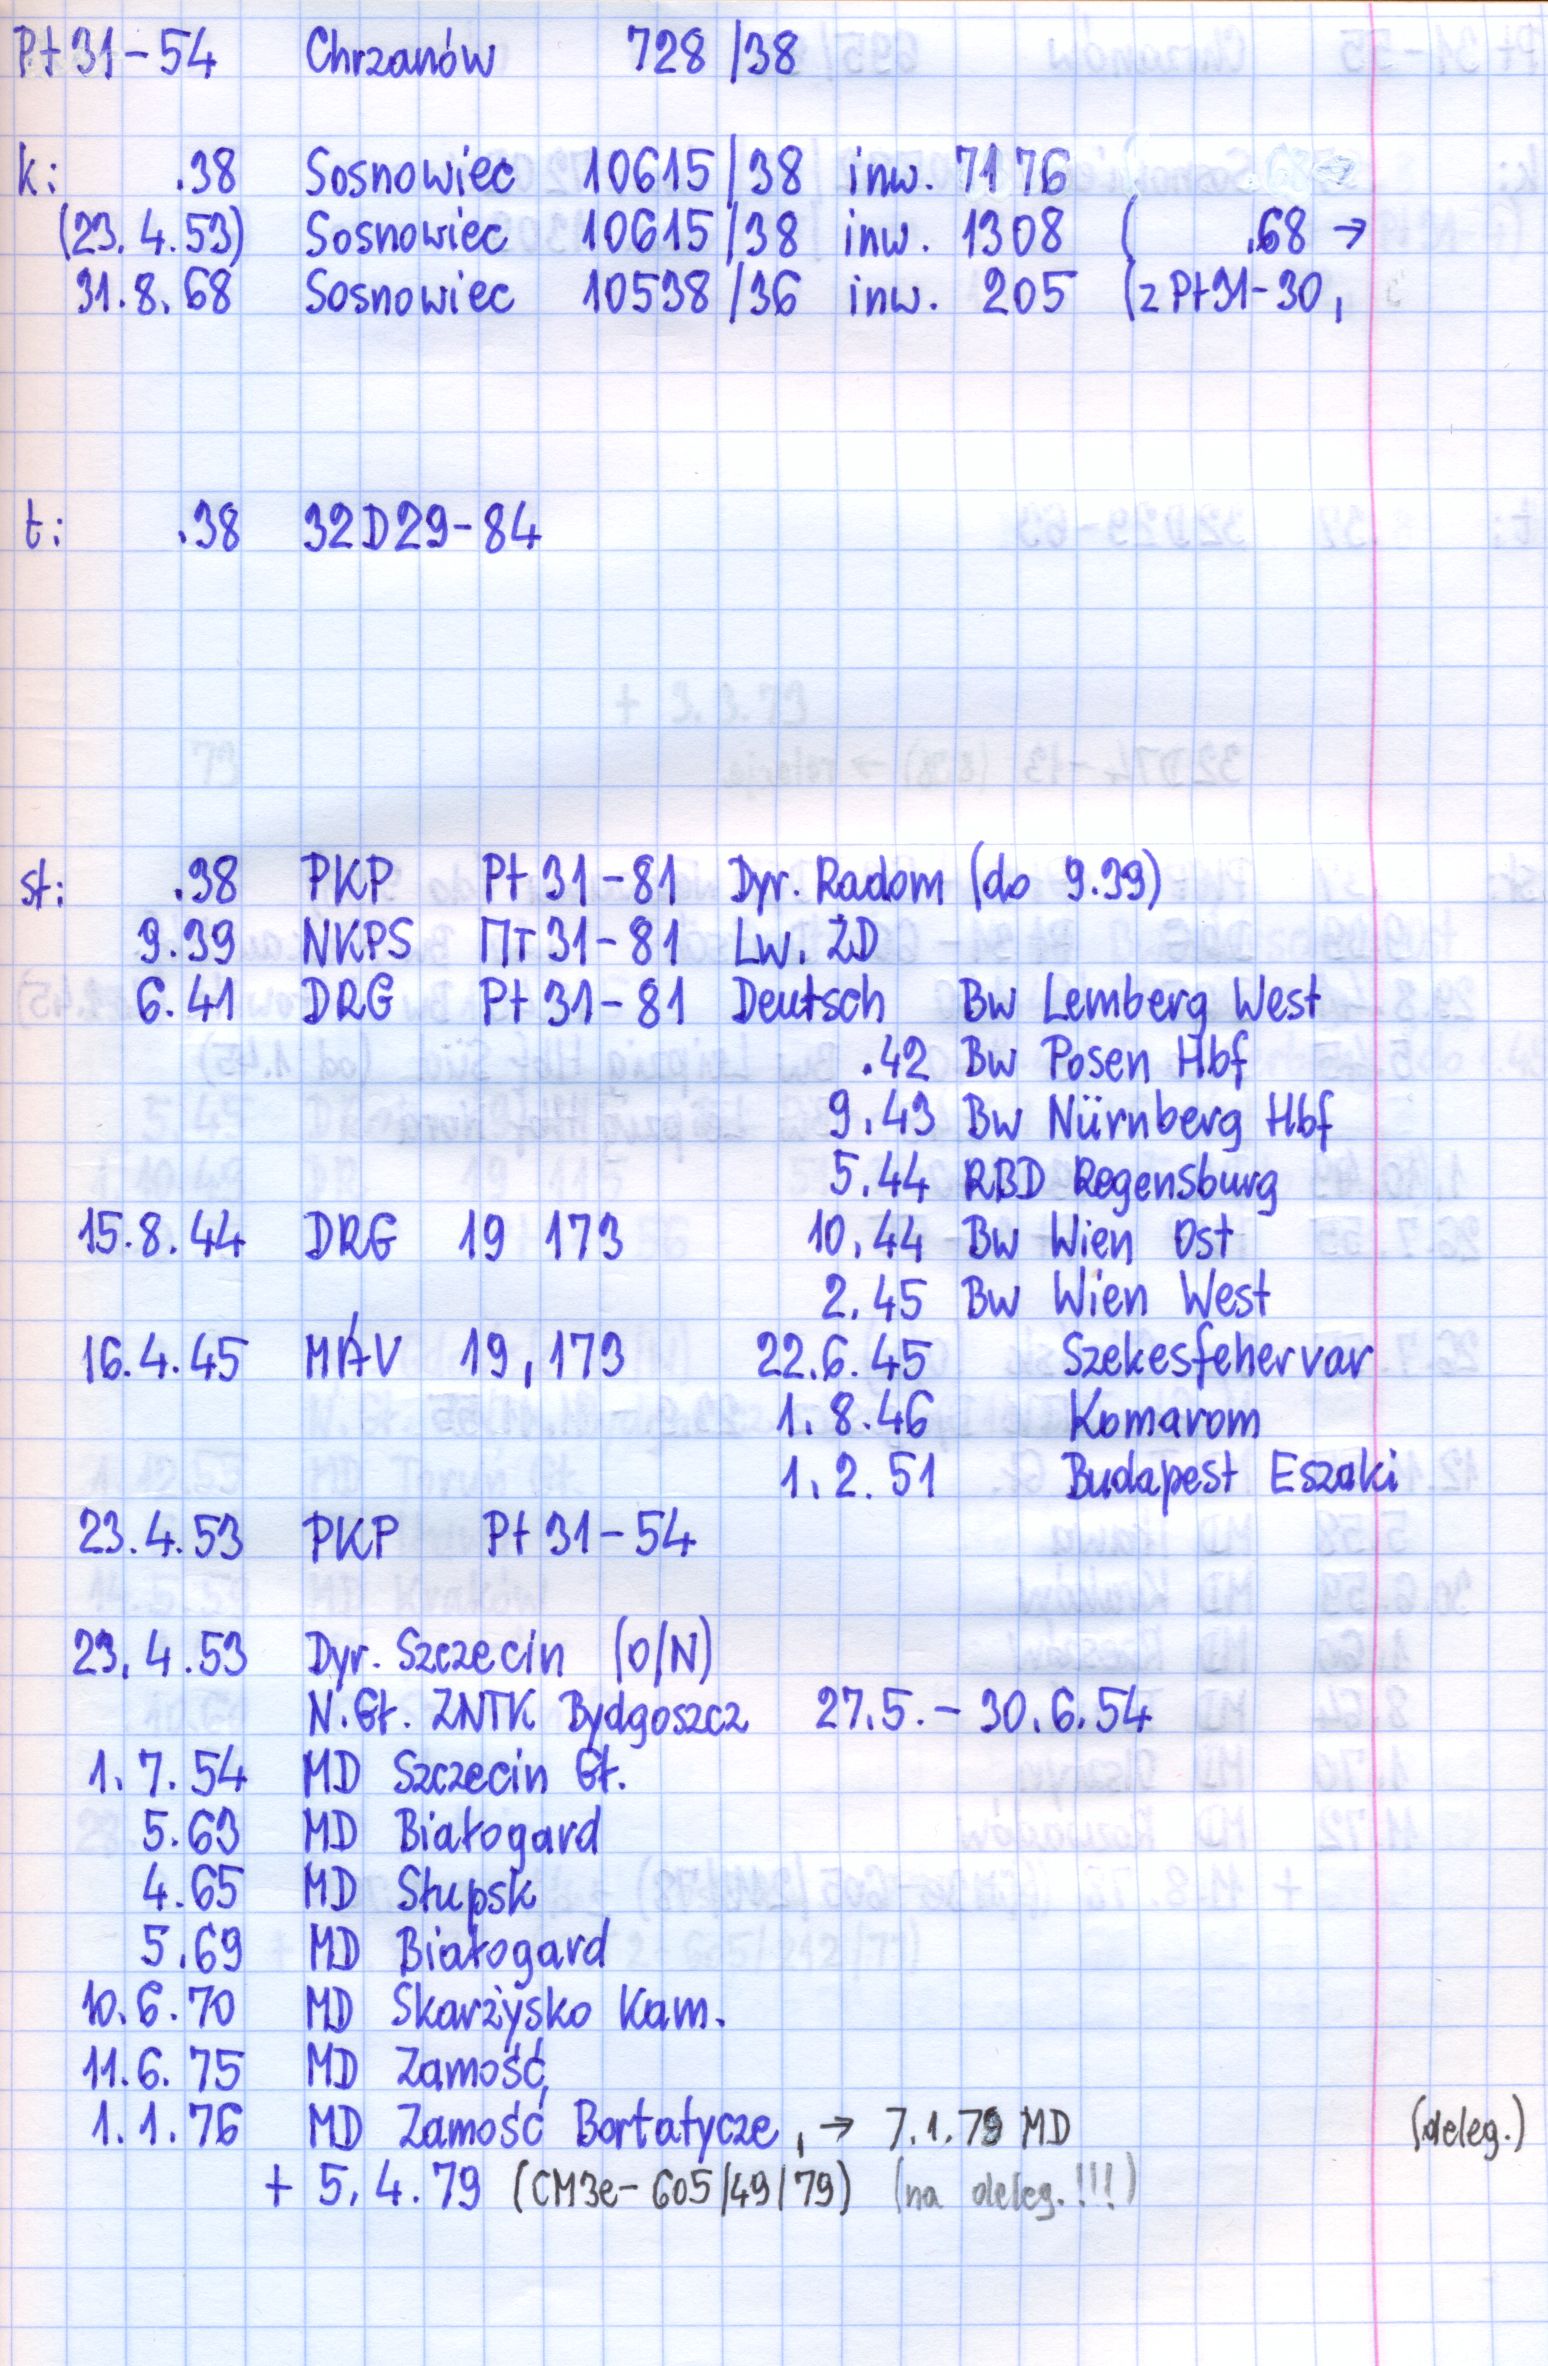 Pt31-54 Chrzanów 728/38
k: .38 Sosnowiec 10615/38 inw. 7176
(23.4.53) Sosnowiec 10615/38 inw. 1308 ( .68 →
31.8.68 Sosnowiec 10538/36 inw. 205 (z Pt31-30,
t: .38 32D29-84
st: .38 PKP Pt31-81 Dyr. Radom (do 9.39)
9.39 NKPS Пт31-81 Lw. ŻD
6.41 DRG Pt31-81 Deutsch Bw Lemberg West
.42 Bw Posen Hbf
9.43 Bw Nürnberg Hbf
5.44 RBD Regensburg
15.8.44 DRG 19 173 10.44 Bw Wien Ost
2.45 Bw Wien West
16.4.45 MÁV 19,173 22.6.45 Szekesfehervar
1.8.46 Komarom
1.2.51 Budapest Eszaki
23.4.53 PKP Pt31-54
23.4.53 Dyr. Szczecin (O/N)
N.Gł. ZNTK Bydgoszcz 27.5.-30.6.54
1.7.54 MD Szczecin Gł.
5.63 MD Białogard
4.65 MD Słupsk
5.69 MD Białogard
10.6.70 MD Skarżysko Kam.
11.6.75 MD Zamość,
1.1.76 MD Zamość Bortatycze, → 7.1.79 MD (deleg.)
+ 5.4.79 (CM3e-605/49/79) (na deleg.!!!)